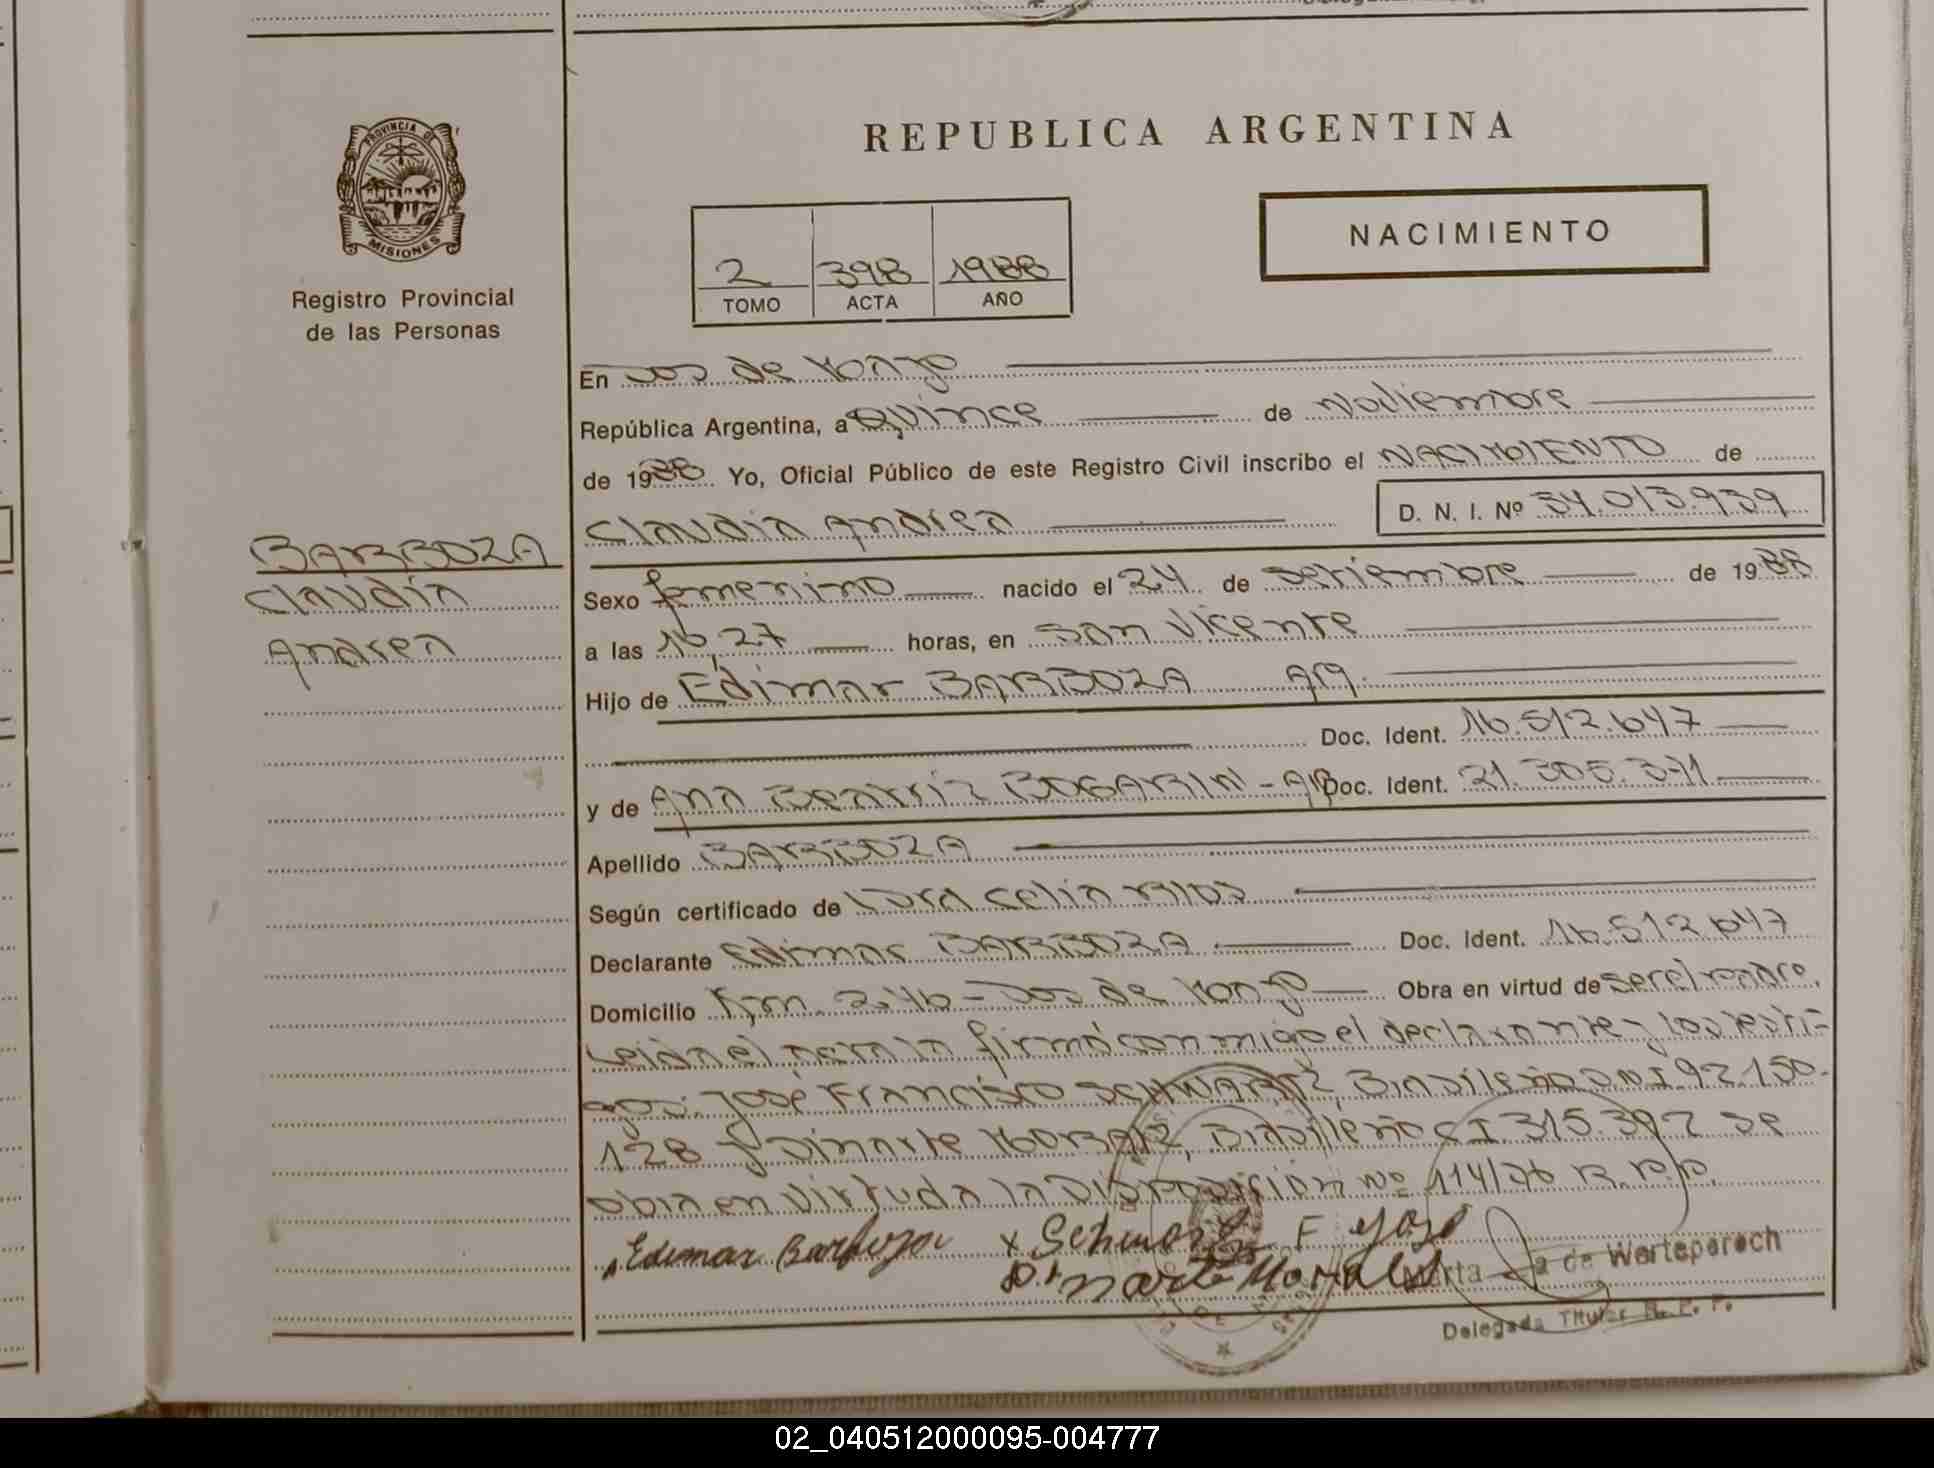 PROVINCIA DE
MISIONES
Registro Provincial
de las Personas
BARBOZA
Claudia
Andrea
REPUBLICA ARGENTINA
NACIMIENTO
2 398 1988
TOMO ACTA AÑO
En Dos de Mayo
República Argentina, a Quince de Noviembre
de 1988 Yo, Oficial Público de este Registro Civil inscribo el NACIMIENTO de
Claudia Andrea D. N. I. Nº 34.013.939
Sexo femenino nacido el 24 de setiembre de 1988
a las 16,27 horas, en San Vicente
Hijo de Edimar BARBOZA Arg.
Doc. Ident. 16.512.647
y de Ana Beatriz BOGARIN - Doc. Ident. 21.305.371
Apellido BARBOZA
Según certificado de Celia RIOS
Declarante Edimar BARBOZA Doc. Ident. 16.512.647
Domicilio Km. 246 - Dos de Mayo Obra en virtud de ser el Padre,
Leida el acta la firmó conmigo el declarante y los testi-
gos: José Francisco SCHWARTZ, Brasileño DNI 92.150.
128 y Dinarte MORAIZ, Brasileño CI 315.392 se
obra en virtud a la Disposición Nº 114/76 R.P.P.
Edimar Barboza x Schwartz F José
Dinarte Morais
Marta de Werteparoch
Delegada Titular R. P. P.
02_040512000095-004777